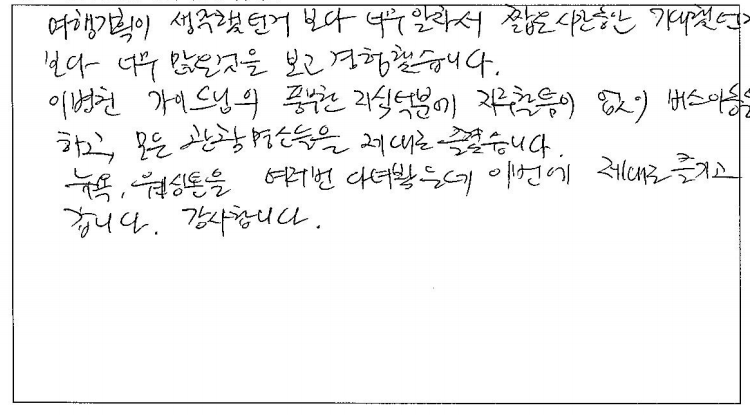 여행계획이 생각했던거 보다 너무 알차서 짧은 시간동안 기대했던거
보다 너무 많은것을 보고 경험했습니다.
이병천 가이드님의 풍부한 지식덕분에 지루함틈이 없이 버스이동을
하고, 모든 관광명소들을 제대로 즐겼습니다.
뉴욕, 워싱톤을 여러번 다녀봤는데 이번에 제대로 즐기고
갑니다. 감사합니다.